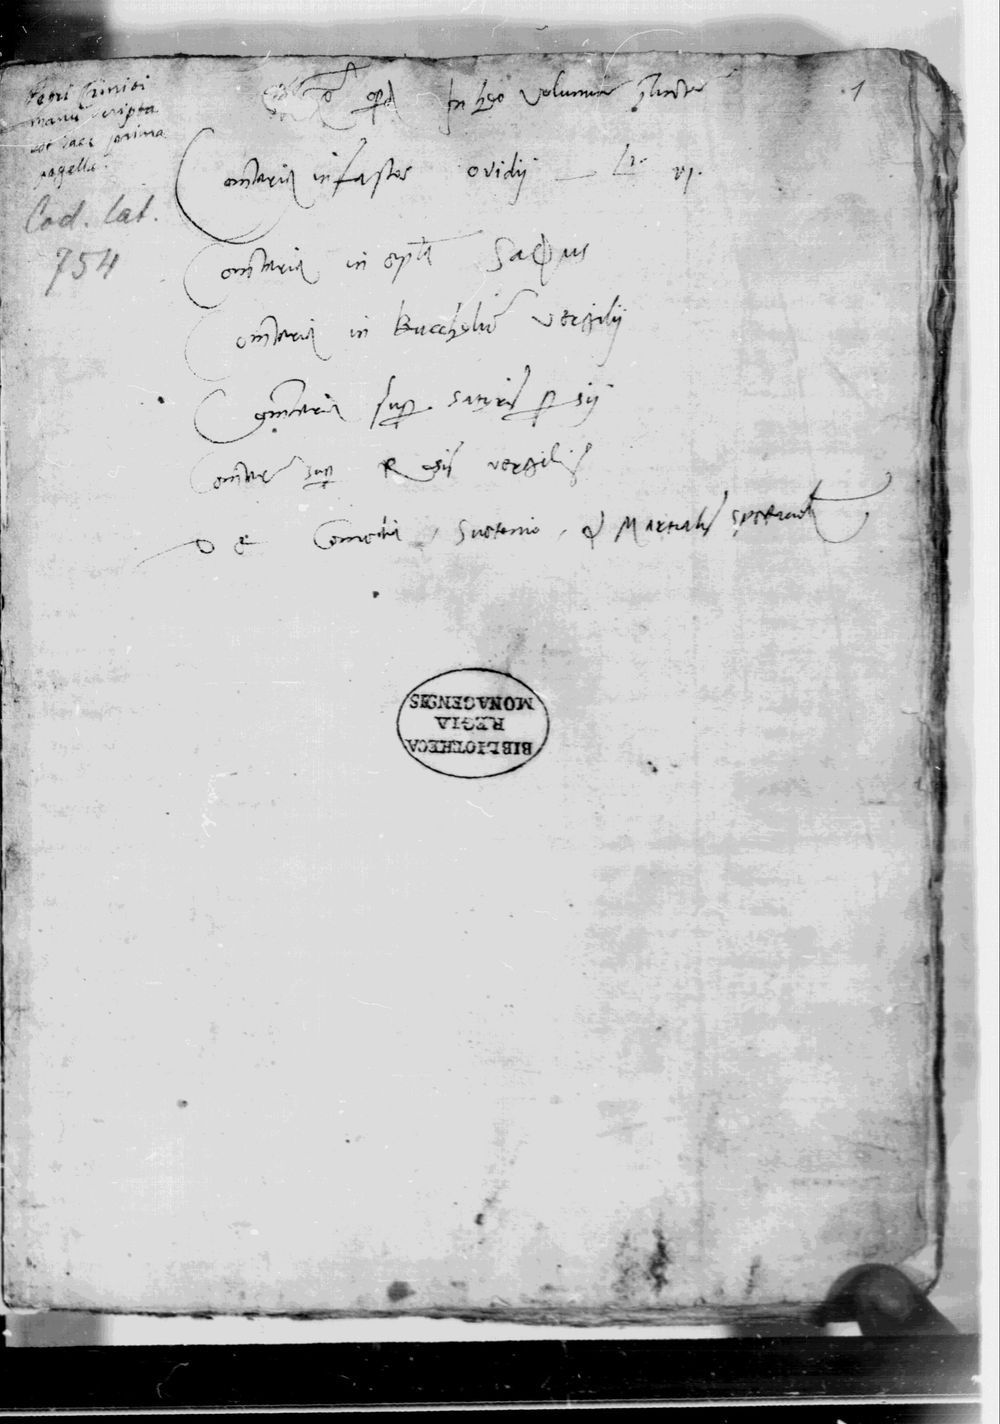 Petri Criniti
manu scripta
est haec prima
pagella.
Cod. lat.
754
1
In hoc volumine
Comentaria in fastos ovidii — vi.
Comentaria in Saphus
Comentaria in Buccholicū Vergilij
Comentaria sup satyris
sup vergilii
De Comedia, Suetonio, & Martialis
BIBLIOTHECA
REGIA
MONACENSIS